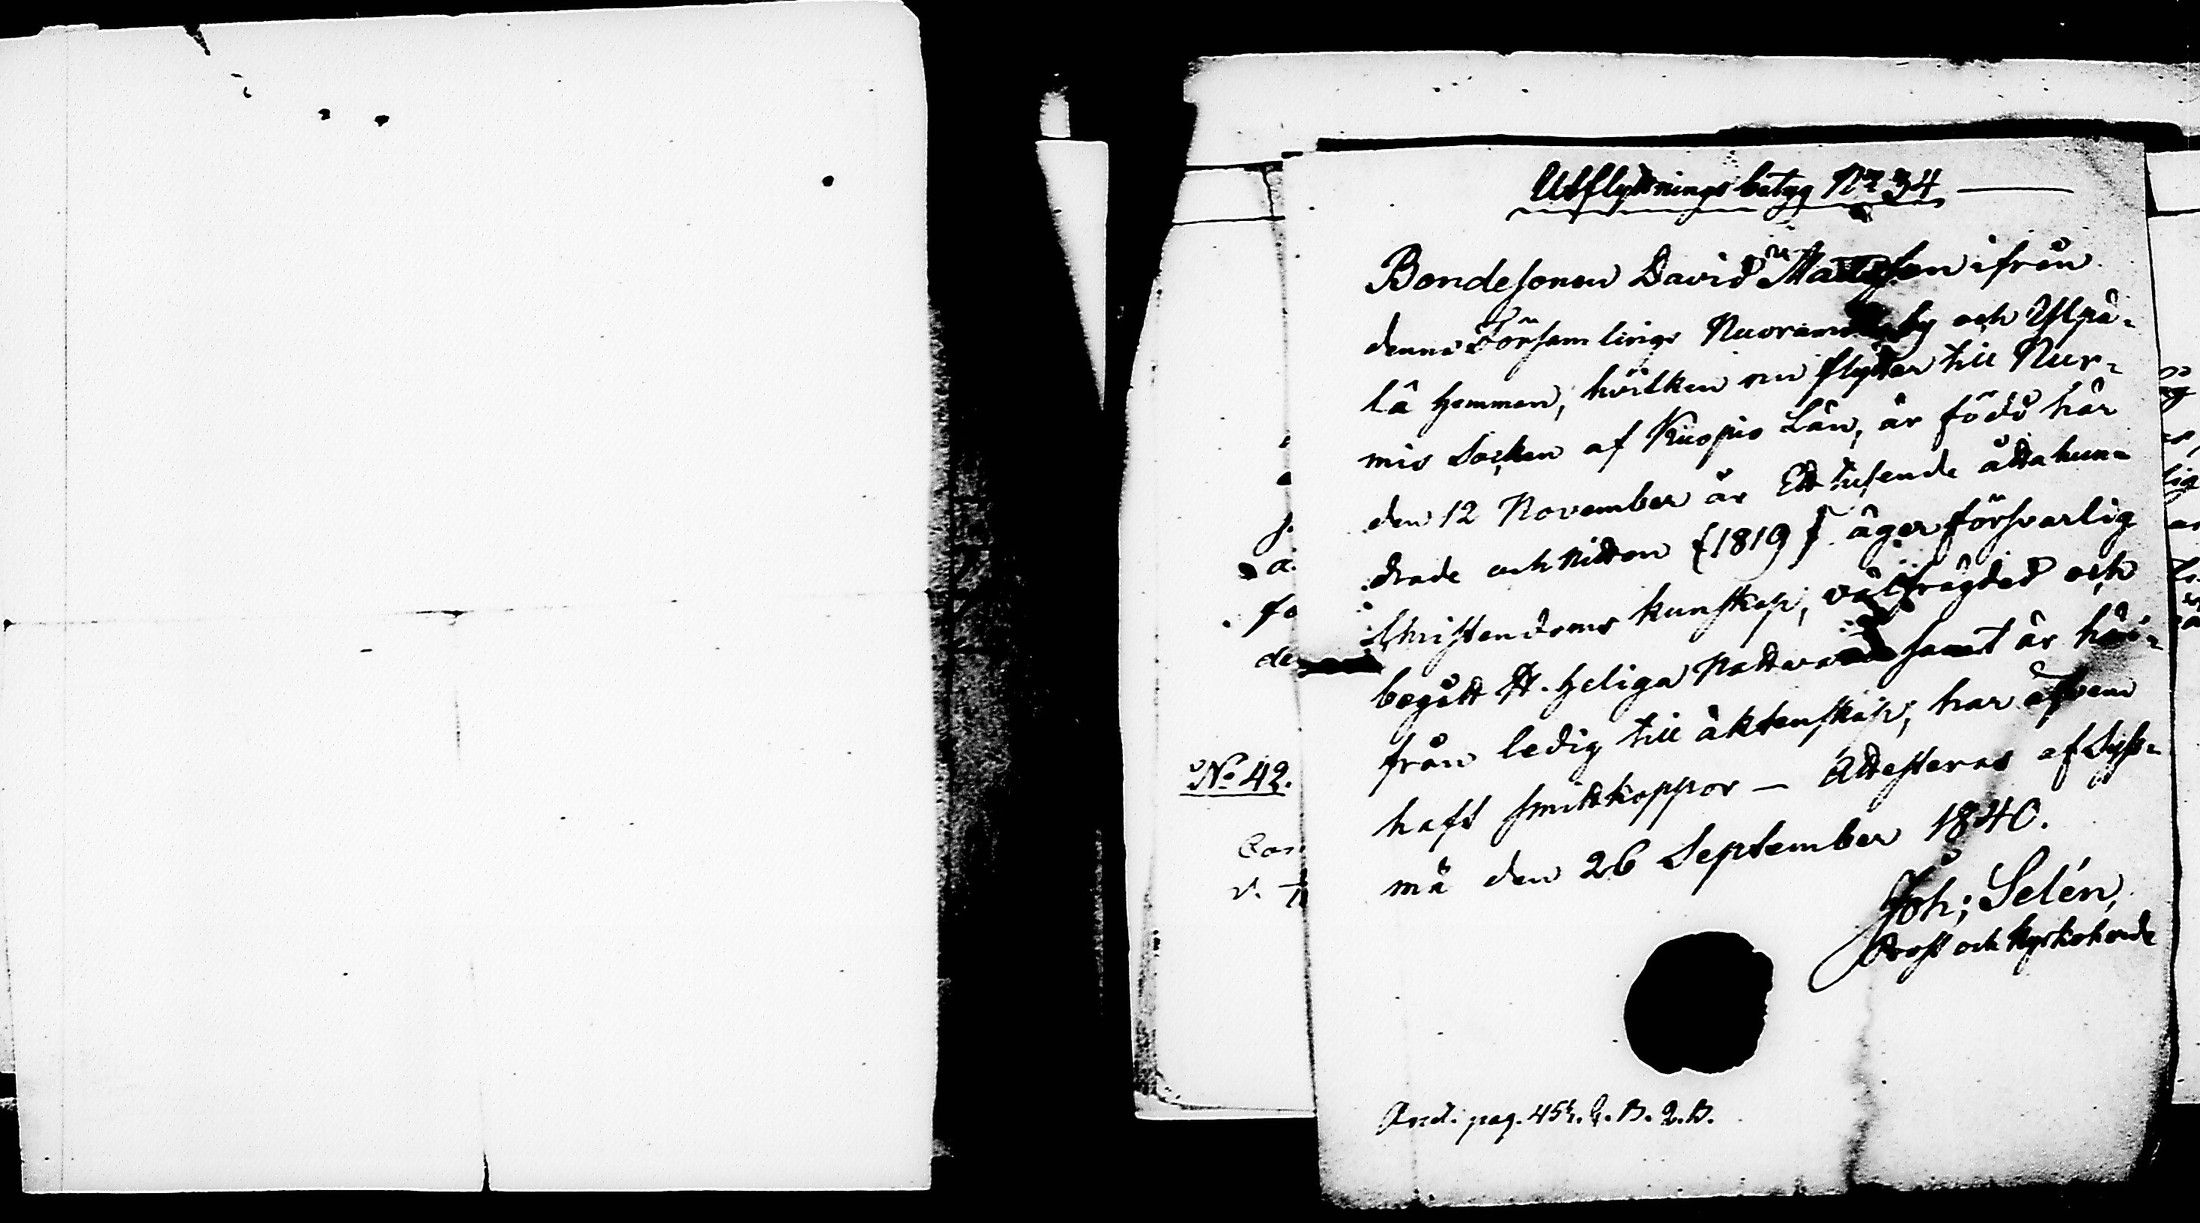 Utflyttnings betyg No 34
Bondesonen David Mattsson ifrån
denna Församlings by och Ylpä-
lä hemman, hvilken nu flyttar till Nur-
mis Socken af Kuopio Län, är född här
den 12 November år Ett tusende åttahun-
drade och nitton (1819) äger försvarlig
Christendoms kunskap, välfrägdad och
begått H. Heliga Nattvard samt är här-
från ledig till äktenskap, har äfven
haft smittkoppor — Attesteras af Lyss-
mä den 26 September 1840.
Joh: Selén,
Prost och Kyrkoherde
pag. 454. L. B. 2. D.
No 42.